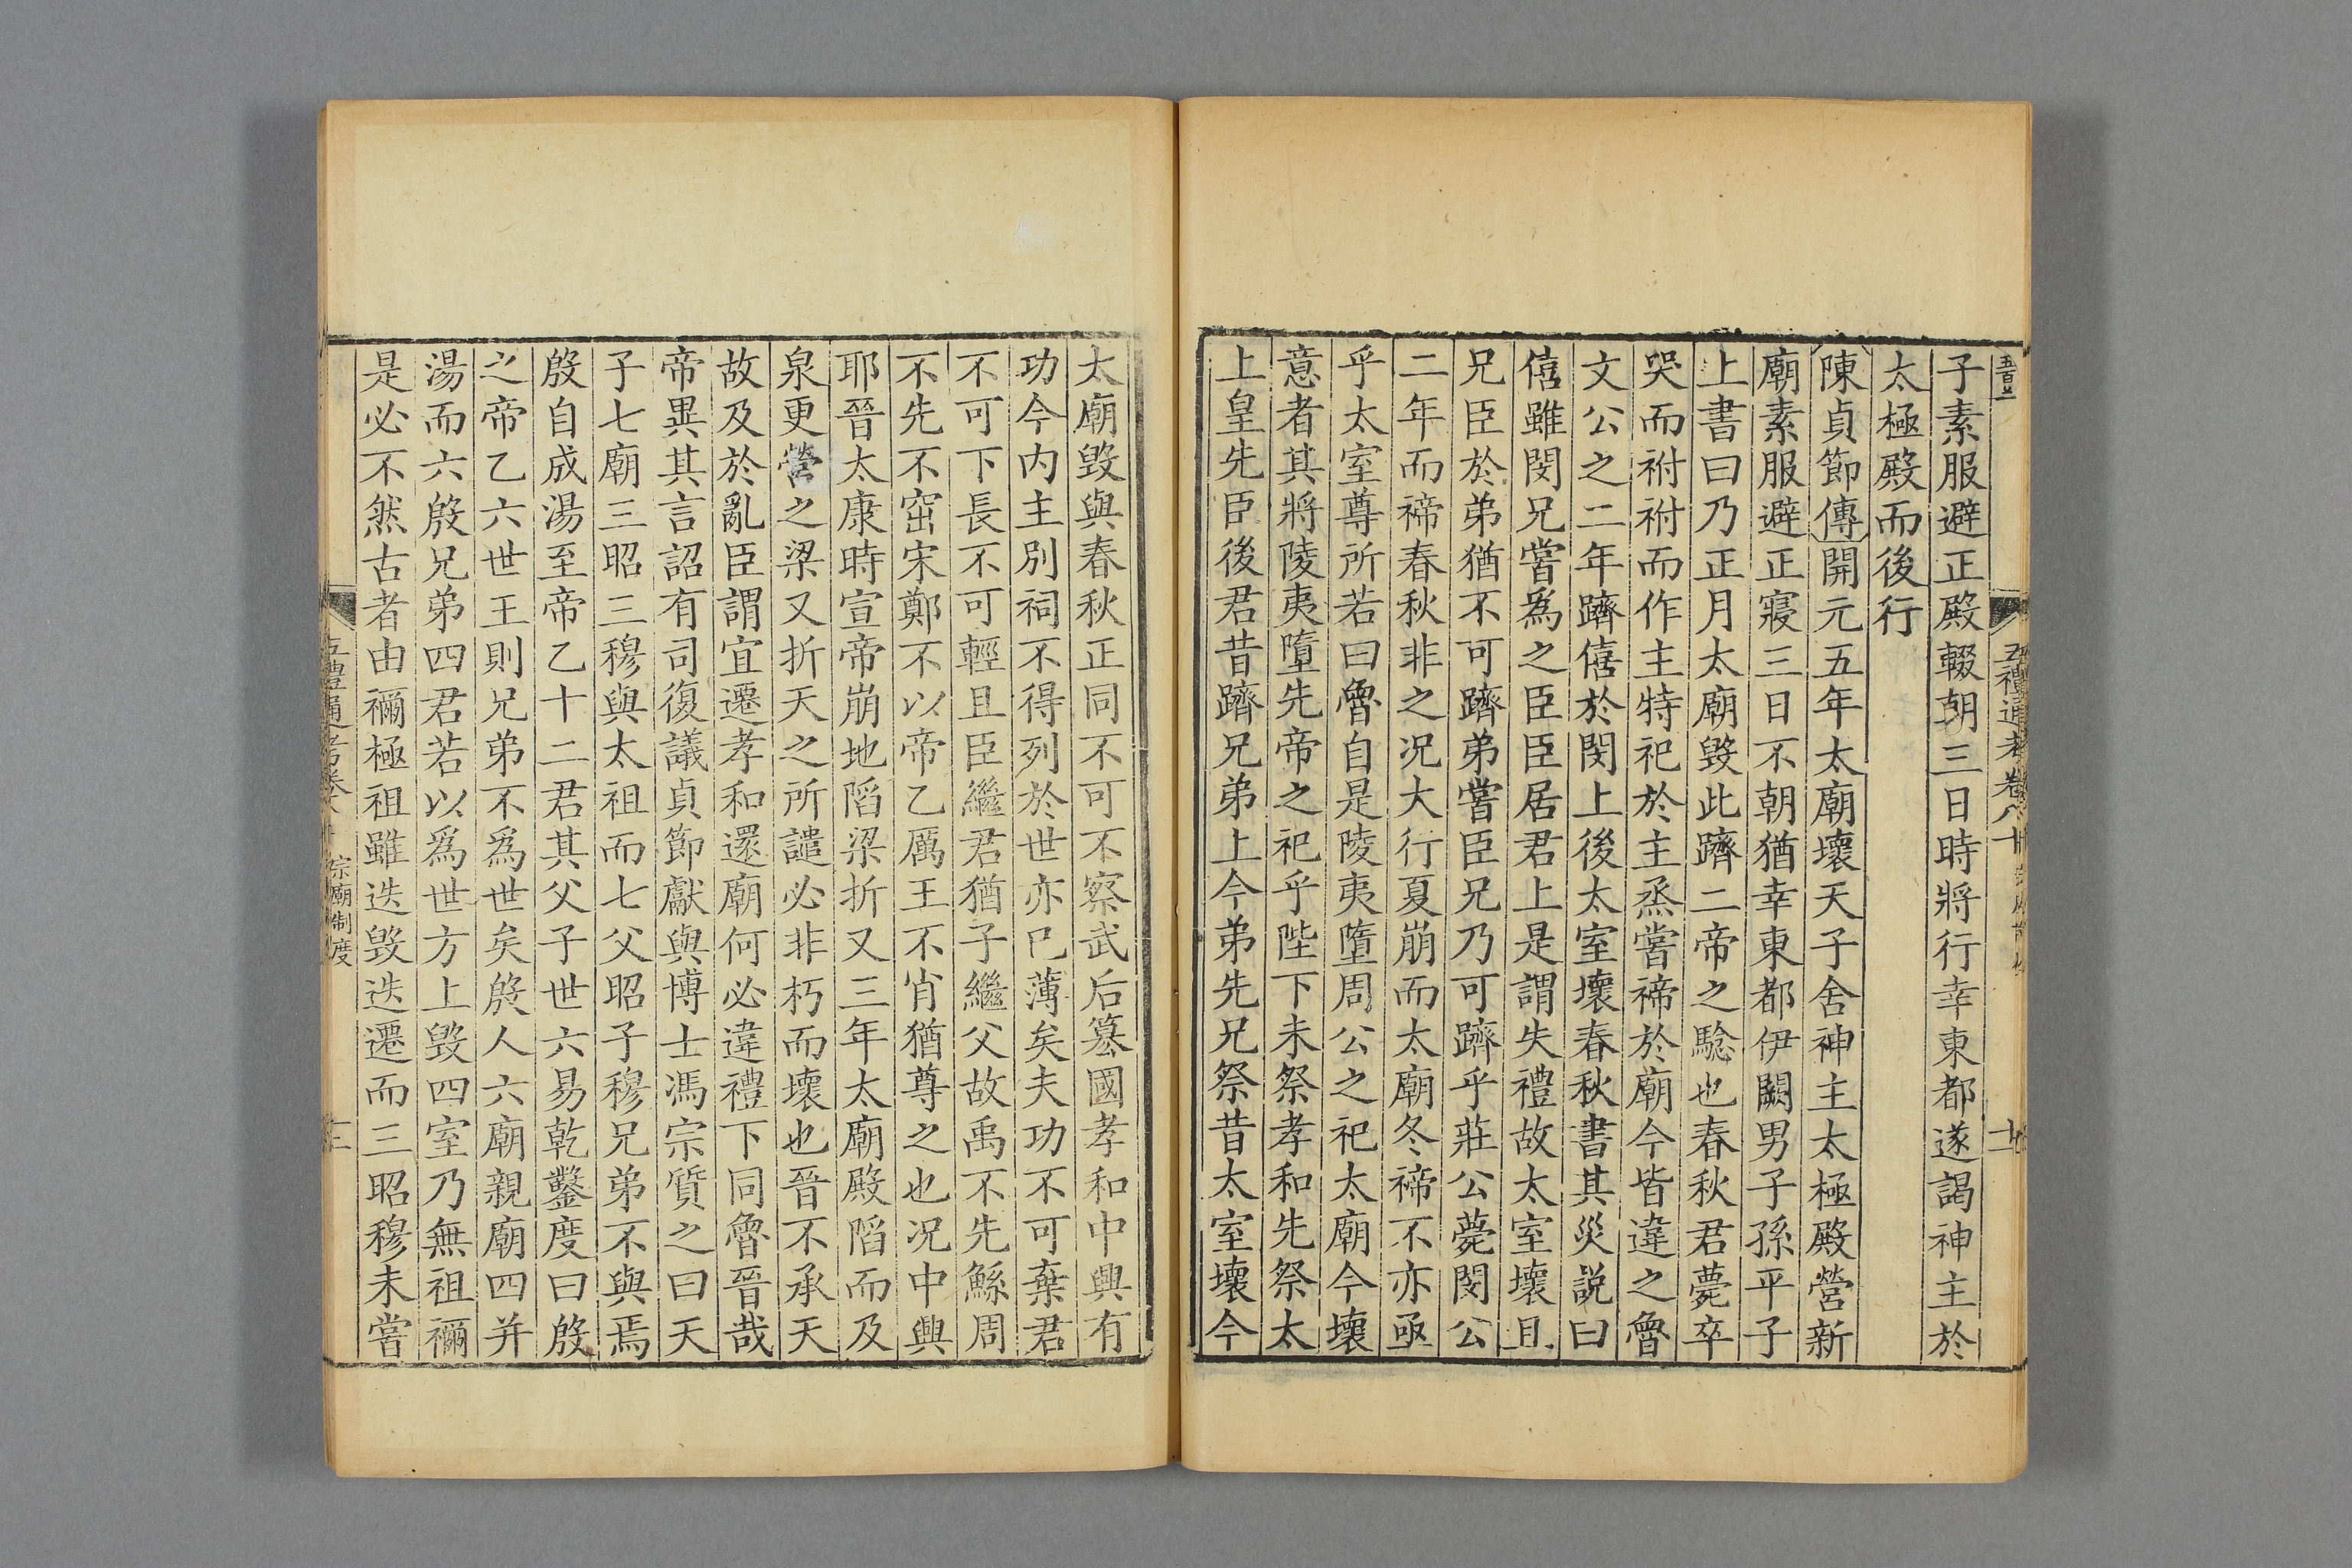 子素服避正殿輟朝三日時將行幸東都遂謁神主於
太極殿而後行
陳貞節傳開元五年太廟壞天子舍神主太極殿營新
廟素服避正寢三日不朝猶幸東都伊闕男子孫平子
上書曰乃正月太廟毀此躋二帝之驗也春秋君薨卒
哭而祔祔而作主特祀於主烝嘗禘於廟今皆違之魯
文公之二年躋僖於閔上後太室壞春秋書其災説曰
僖雖閔兄嘗爲之臣臣居君上是謂失禮故太室壞且
兄臣於弟猶不可躋弟嘗臣兄乃可躋乎莊公薨閔公
二年而禘春秋非之况大行夏崩而太廟冬禘不亦亟
乎太室尊所若曰魯自是陵夷墮周公之祀太廟今壞
意者其將陵夷墮先帝之祀乎陛下未祭孝和先祭太
上皇先臣後君昔躋兄弟上今弟先兄祭昔太室壞今
太廟毀與春秋正同不可不察武后篡國孝和中興有
功今内主別祠不得列於世亦已薄矣夫功不可棄君
不可下長不可輕且臣繼君猶子繼父故禹不先鯀周
不先不窋宋鄭不以帝乙厲王不肖猶尊之也况中興
耶晉太康時宣帝崩地陷梁折又三年太廟殿陷而及
泉更營之梁又折天之所譴必非朽而壞也晉不承天
故及於亂臣謂宜遷孝和還廟何必違禮下同魯晉哉
帝異其言詔有司復議貞節獻與博士馮宗質之曰天
子七廟三昭三穆與太祖而七父昭子穆兄弟不與焉
殷自成湯至帝乙十二君其父子世六易乾鑿度曰殷
之帝乙六世王則兄弟不爲世矣殷人六廟親廟四并
湯而六殷兄弟四君若以爲世方上毀四室乃無祖禰
是必不然古者由禰極祖雖迭毀迭遷而三昭穆未嘗
五禮通考卷八十
宗廟制度